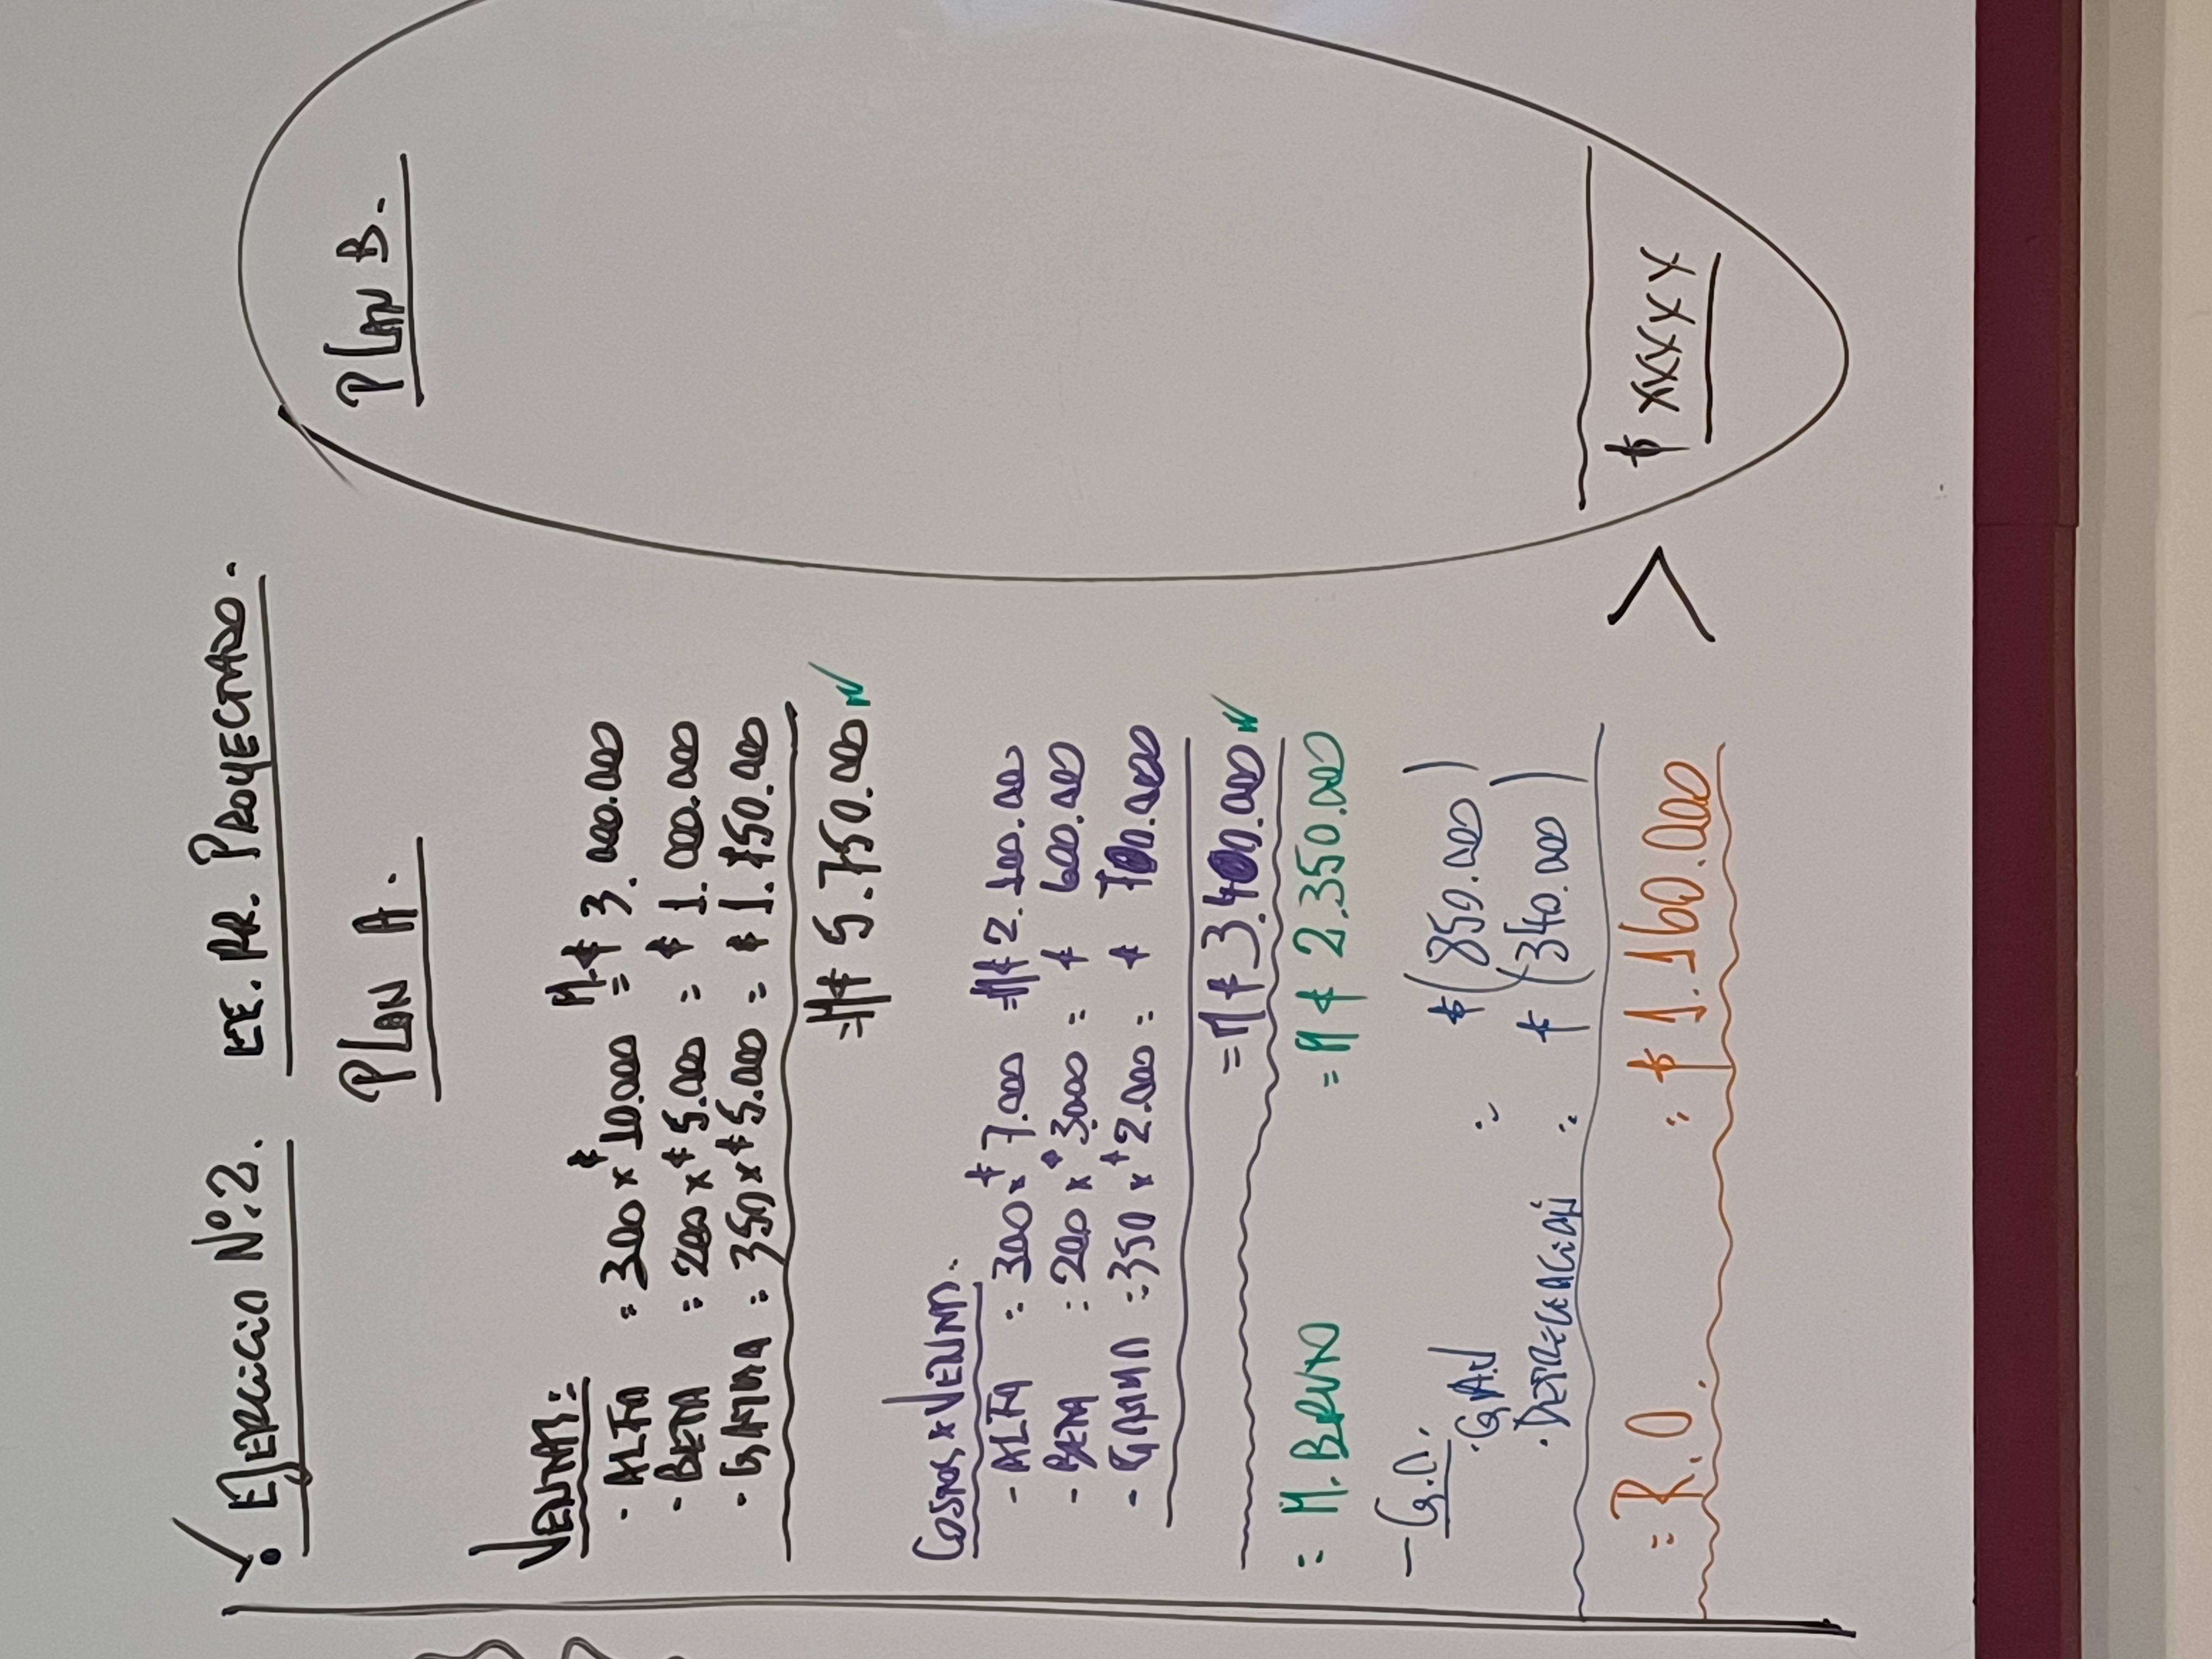 Ejercicio Nº.2. EE. RR. Proyectado.
Plan A.
Plan B.
Ventas:
- Alfa = 300 x $10.000 = M$ 3.000.000
- Beta = 200 x $ 5.000 = $ 1.000.000
- Gamma = 350 x $ 5.000 = $ 1.750.000
= M$ 5.750.000 ✓
Costos x Venta.
- Alfa = 300 x $ 7.000 = M$ 2.100.000
- Beta = 200 x $ 3.000 = $ 600.000
- Gamma = 350 x $ 2.000 = $ 700.000
= M $ 3.400.000 ✓
= M. Bruto = M $ 2.350.000
- G.O.
· GAV = $ (850.000)
· Depreciación = $ (340.000)
= R.O. = $ 1.160.000 > $ xxxxx